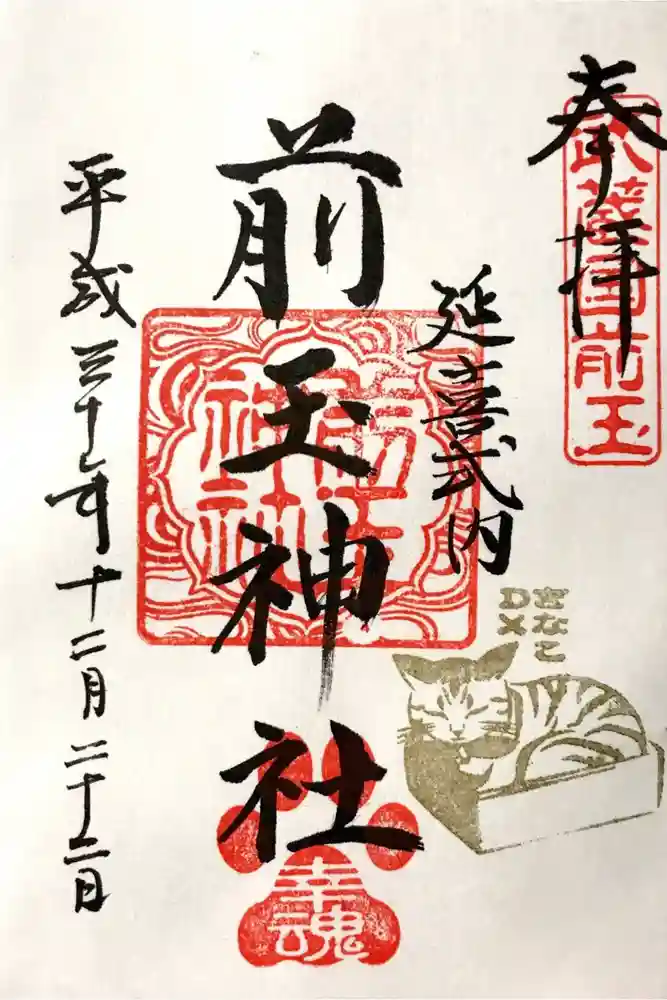 奉拝
武蔵国前玉
延喜式内
きなこ
DX
前玉神社
前玉
神社
幸魂
平成三十年十二月二十二日